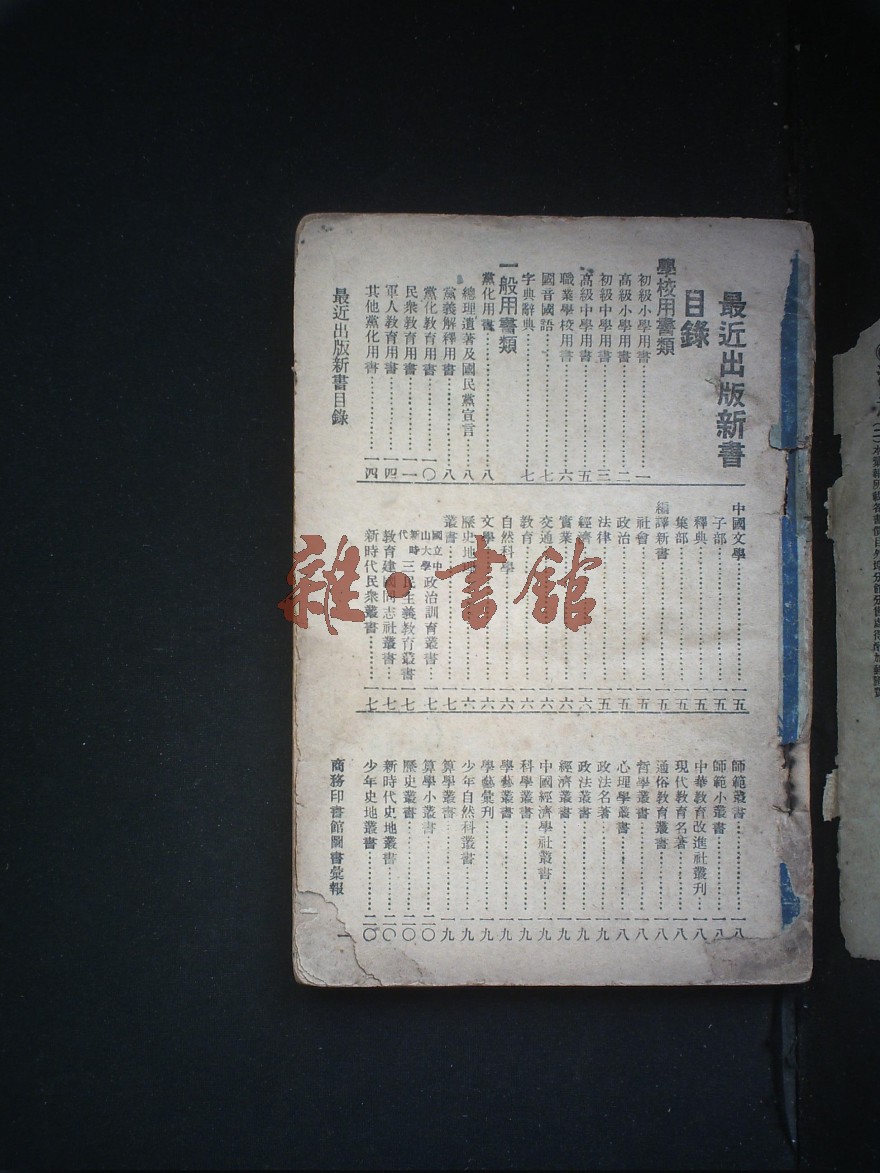 最近出版新書
目錄
學校用書類
初級小學用書…………一
高級小學用書…………二
初級中學用書…………三
高級中學用書…………五
職業學校用書…………六
國音國語…………七
字典辭典…………七
一般用書類
黨化用書…………八
總理遺著及國民黨宣言…………八
黨義解釋用書…………八
黨化教育用書…………一〇
民衆教育用書…………一一
軍人教育用書…………一四
其他黨化用書…………一四
最近出版新書目錄
中國文學…………一五
子部…………一五
釋典…………一五
集部…………一五
編譯新書
社會…………一五
政治…………一五
法律…………一五
經濟…………一六
實業…………一六
交通…………一六
教育…………一六
自然科學…………一六
文學…………一六
歷史地理…………一六
叢書…………一七
國立中山大學政治訓育叢書…………一七
新時代三民主義教育叢書…………一七
教育建國同志社叢書…………一七
新時代民衆叢書…………一七
師範叢書…………一八
師範小叢書…………一八
中華教育改進社叢刊…………一八
現代教育名著…………一八
通俗教育叢書…………一八
哲學叢書…………一八
心理學叢書…………一八
政法名著…………一九
政法叢書…………一九
經濟叢書…………一九
中國經濟學社叢書…………一九
科學叢書…………一九
學藝叢書…………一九
學藝彙刊…………一九
少年自然科叢書…………一九
算學叢書…………一九
算學小叢書…………二〇
歷史叢書…………二〇
新時代史地叢書…………二〇
少年史地叢書…………二〇
商務印書館圖書彙報
一
雜·書館